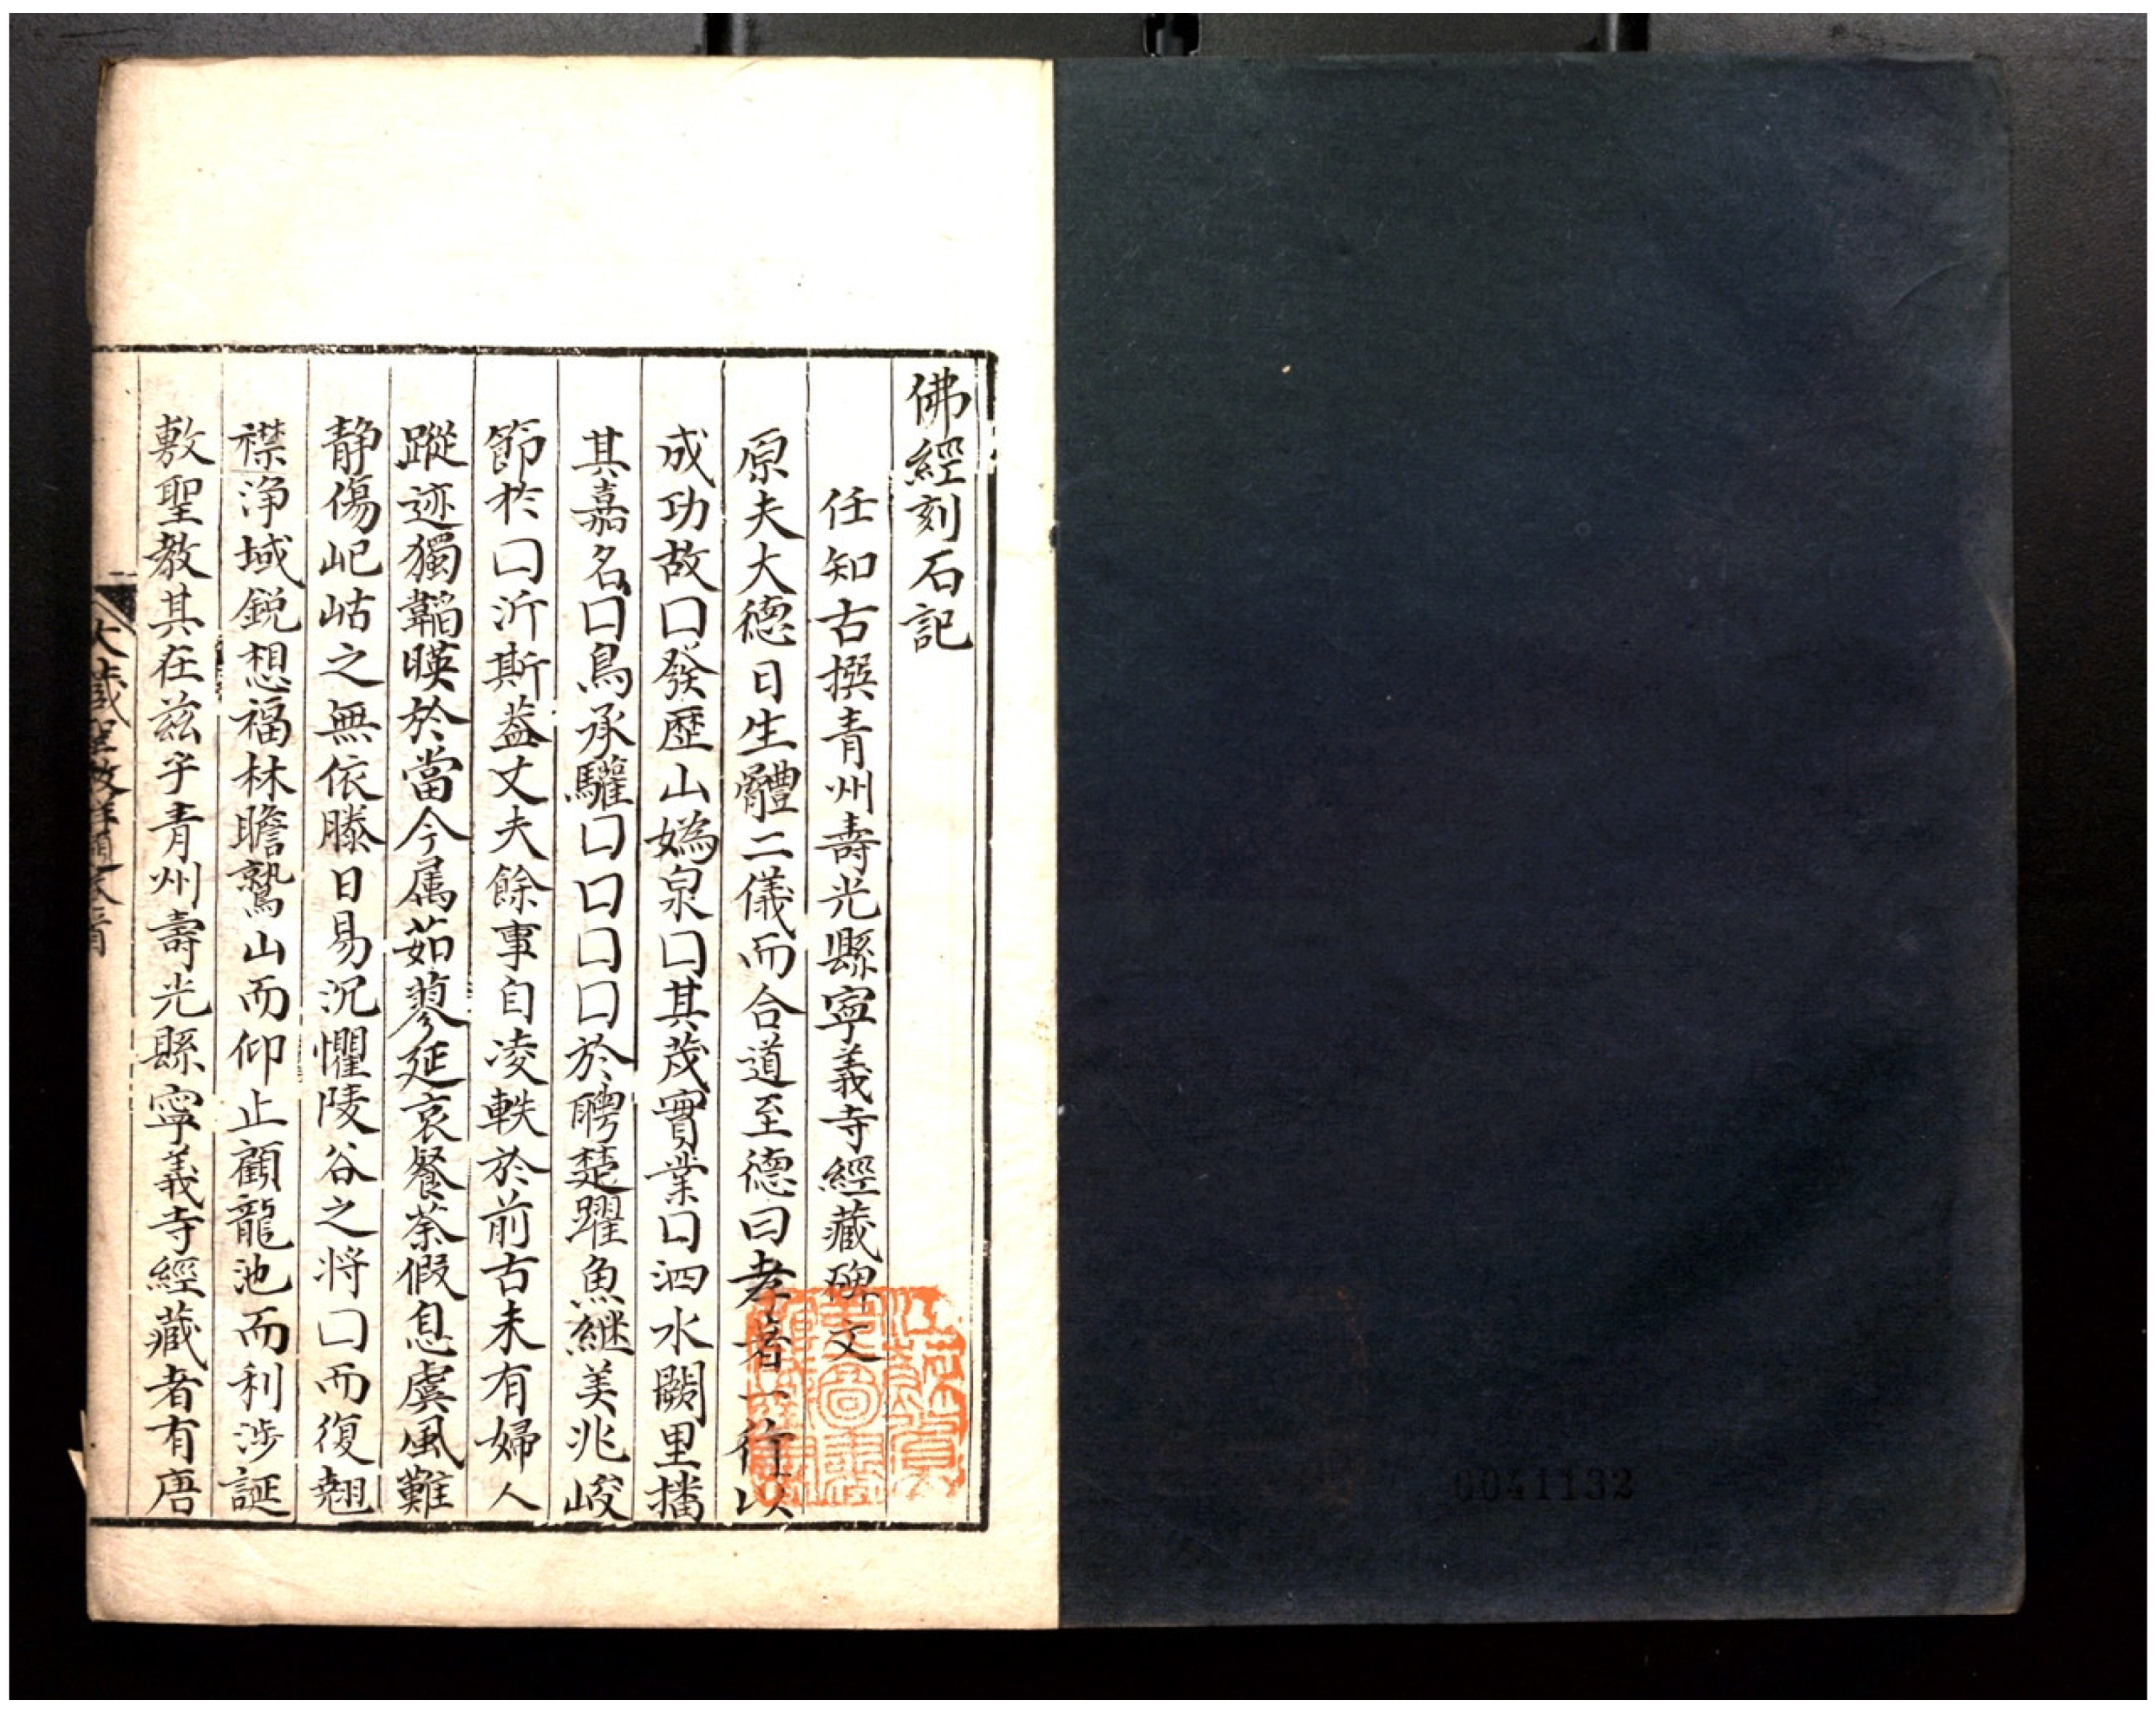 佛經刻石記
任知古撰青州壽光縣寧義寺經藏碑文
原夫大德曰生體二儀而合道至德曰孝著一行以
成功故口發歷山嬀泉口其茂實業口泗水闕里播
其嘉名口鳥承驩口口口口於聘楚躍魚繼美兆峻
節於口沂斯蓋丈夫餘事自凌軼於前古未有婦人
蹤迹獨韜暎於當今属茹蓼延哀餐荼假息虞風難
静傷屺岵之無依滕日易沉懼陵谷之将口而復翹
襟浄域銳想福林瞻鷲山而仰止顧龍池而利涉誕
敷聖教其在兹乎青州壽光縣寧義寺經藏者有唐
0041132